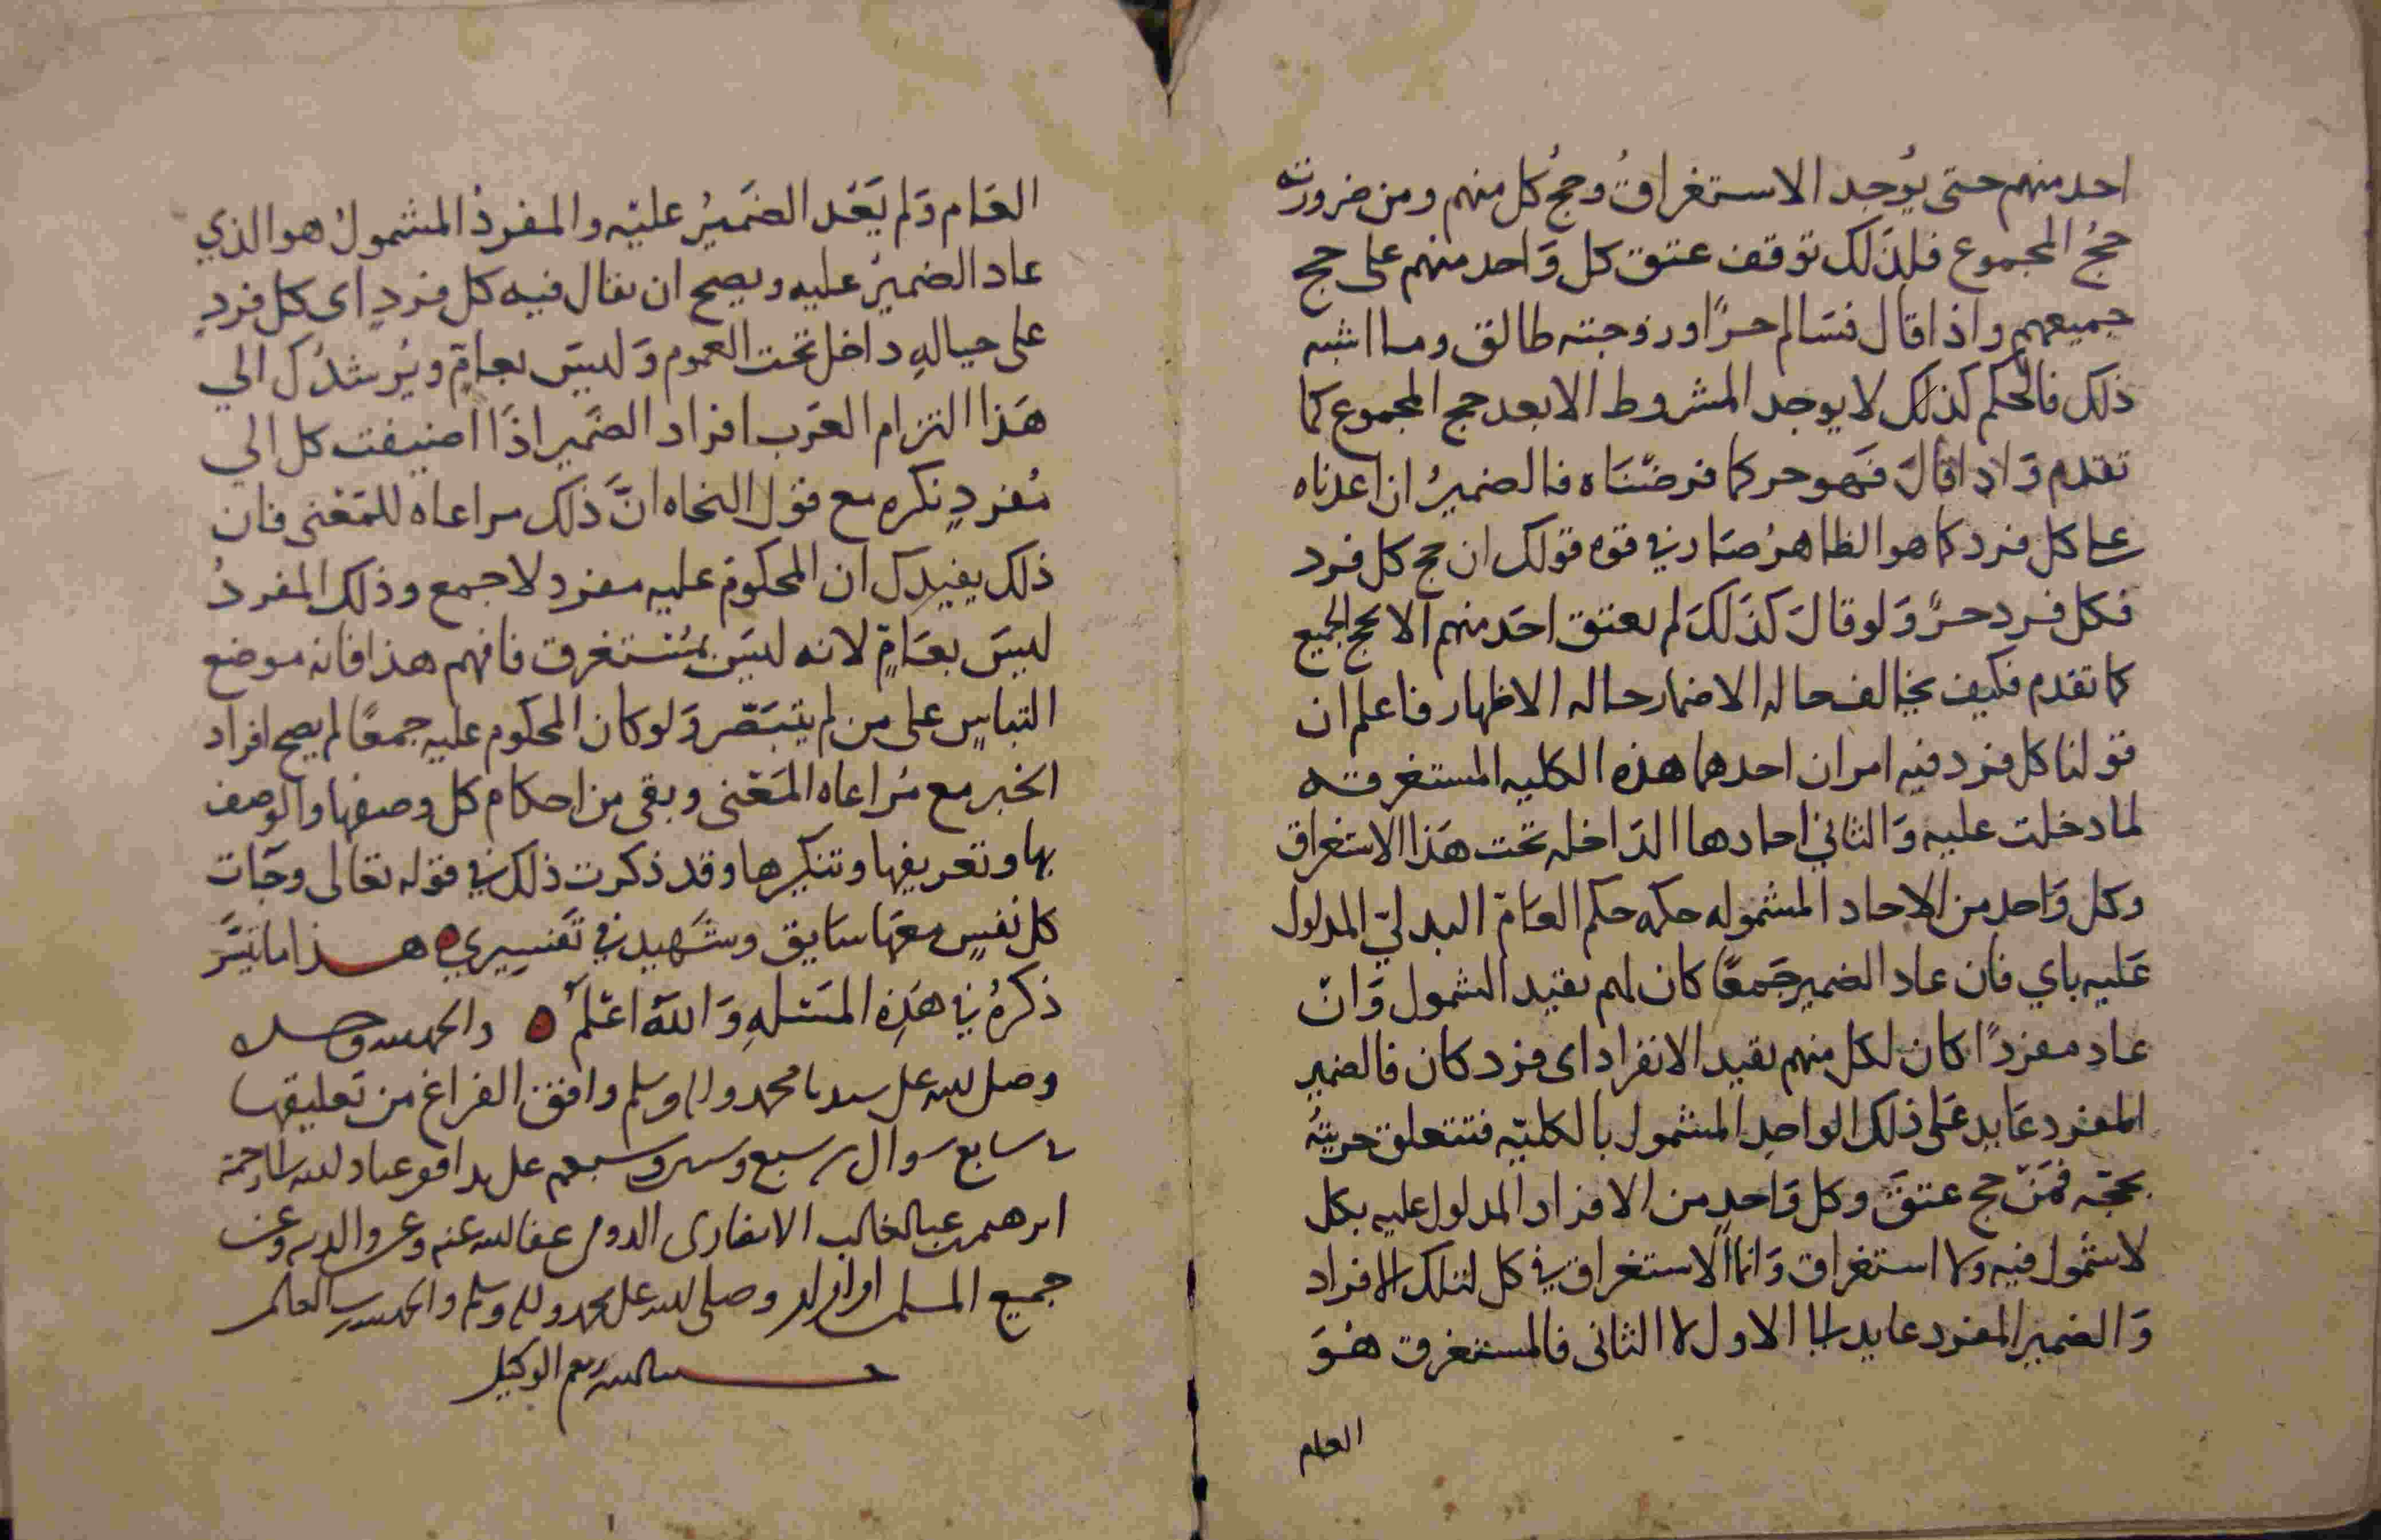 احد منهم حتى يُوجد الاستغراقُ وحجُ كل منهم ومن ضرورته
حجُ المجموع فلذلك توقف عتق كل وَاحد منهم على حج
جميعهم واذا قال فسَالم حرًا او زوجته طالق وما اشبه
ذلك فالحكم كذلك لا يوجد المشروط الا بعد حج المجموع كما
تقدم وَاذا قالَ فهو حر كما فرضنَاه فالضميرُ ان اعدناه
على كل فرد كما هو الظاهرُ صَار في قوه قولك ان حج كل فرد
فكل فرد حرٌ وَلو قالَ كذَلكَ لم يعتق احَد منهم الا بحج الجميع
كما تقدم فكيف يخالف حاله الاضمار حاله الاظهار فاعلم ان
قولنا كل فرد فيه امران احدهما هذه الكليه المستغرقه
لما دخلت عليه وَالثاني احادها الدَاخله تحت هَذا الاستغراق
وكل وَاحد من الاحاد المشموله حكمه حكم العَامّ البدليّ المدلول
عَليه باي فان عاد الضمير جَمعًا كان لهم بقيد الشمول وَانْ
عاد مفردًا كان لكل منهم بقيد الانفراد اى فرد كان فالضمير
المفرد عَايد عَلى ذلك الواحِد المشمول بالكليّه فتتعلق حريتُه
بحجّه فمَنْ حج عتقَ وكل وَاحدٍ من الافراد المدلول عليه بكل
لا شمُول فيه ولا استغراق وَانما الاستغراق في كل لتلك الافراد
وَالضمير المفرد عايد الى الاول لا الثانى فالمستغرق هُوَ
العام
العَام وَلم يَعُد الضَميرُ عليْه والمفردُ المشمولُ هو الذي
عاد الضميرُ عليه ويصح ان يقال فيه كل فردٍ اى كل فردٍ
على حيالهِ داخل تحت العموم وَليسَ بعامٍ ويُرشدُك الي
هَذا التزام العَرب افراد الضمير اذَا اضيفت كل الي
مُفردٍ نكره مع قول النحاه انَّ ذلك مراعاه للمَعْنى فان
ذلك يفيدك ان المحكومَ عليه مفرد لا جمع وذلك المفردُ
ليسَ بعَامٍ لانه ليسَ بمُستغرق فافهم هذا فانه موضع
التباسٍ على من لم يتبَصّر وَلو كان المحكوم عليه جمعًا لم يصح افراد
الخبر مع مُراعاه المَعْنى وبقى من احكام كل وصفها والوصف
بها وتعريفها وتنكيرها وقد ذكرت ذلك في قوله تعالى وجَات
كل نفسٍ معهَا سَايق وشَهيد في تَفسِيري هذا ما تيسَّر
ذكرهُ في هَذِه المَسْئلهِ وَاللهُ اعْلم والحمد لله وحده
وصلى الله على سيدنا محمد واله وسلم وافق الفراغ من تعليقها
سابع شوال سبع وسبعمـ على يد افقر عباد الله الى رحمته
ابرهيم عبد الخالق الانصارى عفا الله عنه وعن والديه وعن
جميع المسلمين وصلى الله على محمد واله وسلم والحمد لله رب العالمين
حسبنا الله ونعم الوكيل